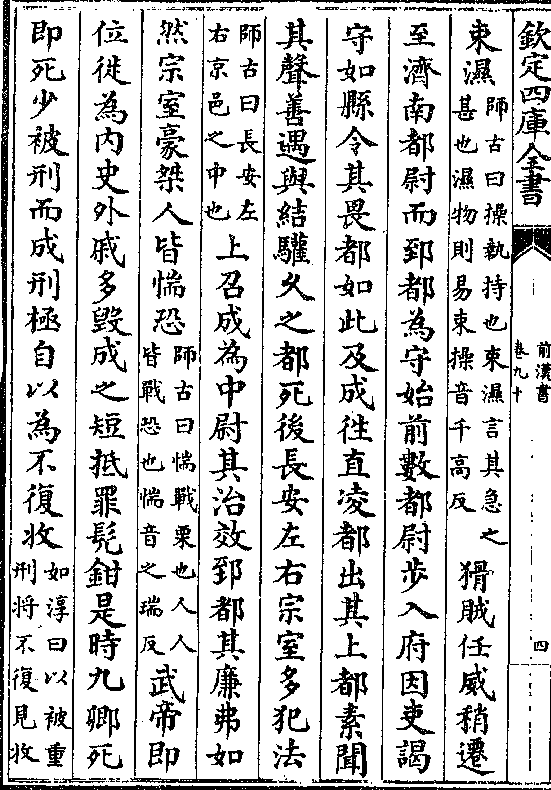 欽定四庫全書
前漢書
卷九十
四
束濕師古曰操執持也束濕言其急之甚也濕物則易束操音千高反猾賊任威稍遷
至濟南都尉而郅都為守始前數都尉步入府因吏謁
守如縣令其畏都如此及成徃直凌都出其上都素聞
其聲善遇與結驩久之都死後長安左右宗室多犯法
師古曰長安左右京邑之中也上召成為中尉其治效郅都其廉弗如
然宗室豪桀人皆惴恐師古曰惴戰栗也人人皆戰恐也惴音之瑞反武帝即
位徙為内史外戚多毀成之短抵罪髠鉗是時九卿死
即死少被刑而成刑極自以為不復收如淳曰以被重刑將不復見收